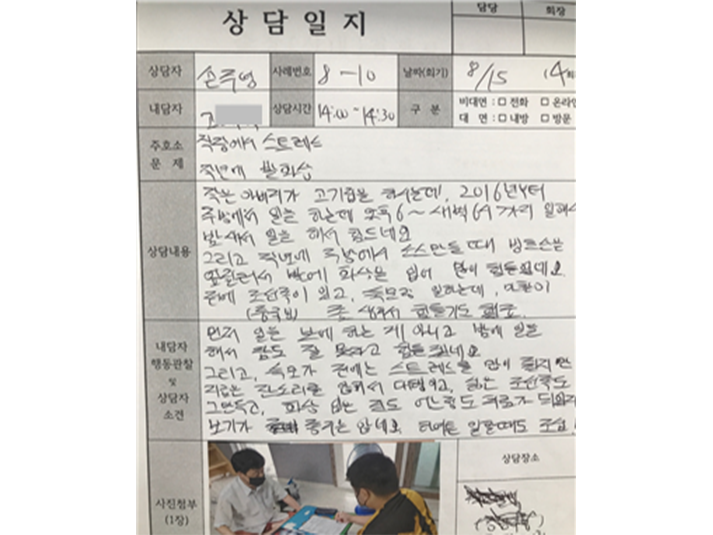 상담일지
담당 회장
상담자 손주영 사례번호 8-10 날짜(회기) 8/15 (4회
내담자 상담시간 14:00~14:30 구 분 비대면 : □ 전화 □ 온라인
대 면 : □ 내방 □ 방문
주호소 직장에서 스트레스
문 제 작년에 발화상
상담내용
작은 아버지가 고기집을 하시는데, 2016년부터
주방에서 일을 하는데 오후6~새벽6시까지 일해서
밤새서 일을 해서 힘드네요
그리고 작년에 주방에서 소스만들때
발에 화상을 입어 많이 힘들었데요
전에 조선족이 있고, 숙모랑 일하는데,
(중국인) 힘들기도 했죠.
내담자
행동관찰
및
상담자
소견
먼저 일을 낮에 하는 게 아니고 밤에 일을
해서 잠도 잘 못자고 힘들겠네요
그리고, 숙모가 전에는 스트레스를 많이 줬지만
지금은 잔소리를 안해서 다행이고, 일는 조선족도
그만두고, 화상 입은 것도 어느정도 치료가 되었지만
보기가 좋지는 않네요. 일할때도 조심!
사진첨부
(1장)
상담장소